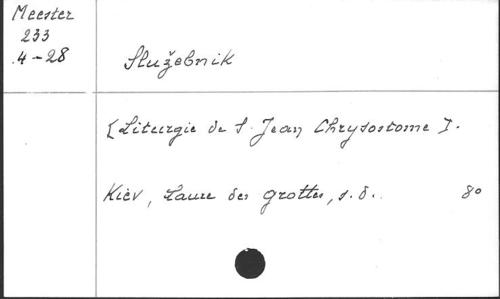 Meester
233
4-28
Služebnik
[Liturgie de S. Jean Chrysostome].
Kièv, Laure des grottes, s.d.. 8°